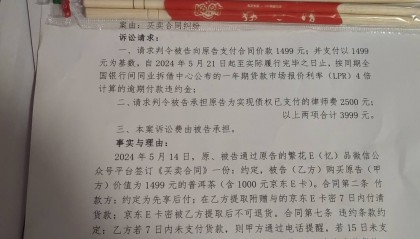 案由：买卖合同纠纷
诉讼请求：
一、请求判令被告向原告支付合同价款 1499 元；并支付以 1499
元为基数，自 2024 年 5 月 21 日起至实际履行完毕之日止，按同期全
国银行间同业拆借中心公布的一年期贷款市场报价利率（LPR）4 倍
计算的逾期付款违约金；
二、请求判令被告承担原告为实现债权已支付的律师费 2500 元；
以上两项合计 3999 元。
三、本案诉讼费由被告承担。
事实与理由：
2024 年 5 月 14 日，原、被告通过原告的繁花 E（亿）品微信公
众号平台签订《买卖合同》一份；约定，被告（乙方）购买原告（甲
方）价值为 1499 元的普洱茶（含 1000 元京东 E 卡）。合同第二条 付
款方：约定为先享后付；在乙方提取附赠与的京东 E 卡密 7 日内付清
货款；京东 E 卡密被乙方提取后不可退货。合同第七条 违约条款约
定；乙方若 7 日内未支付货款，则甲方通过电话提醒，若 15 日未支